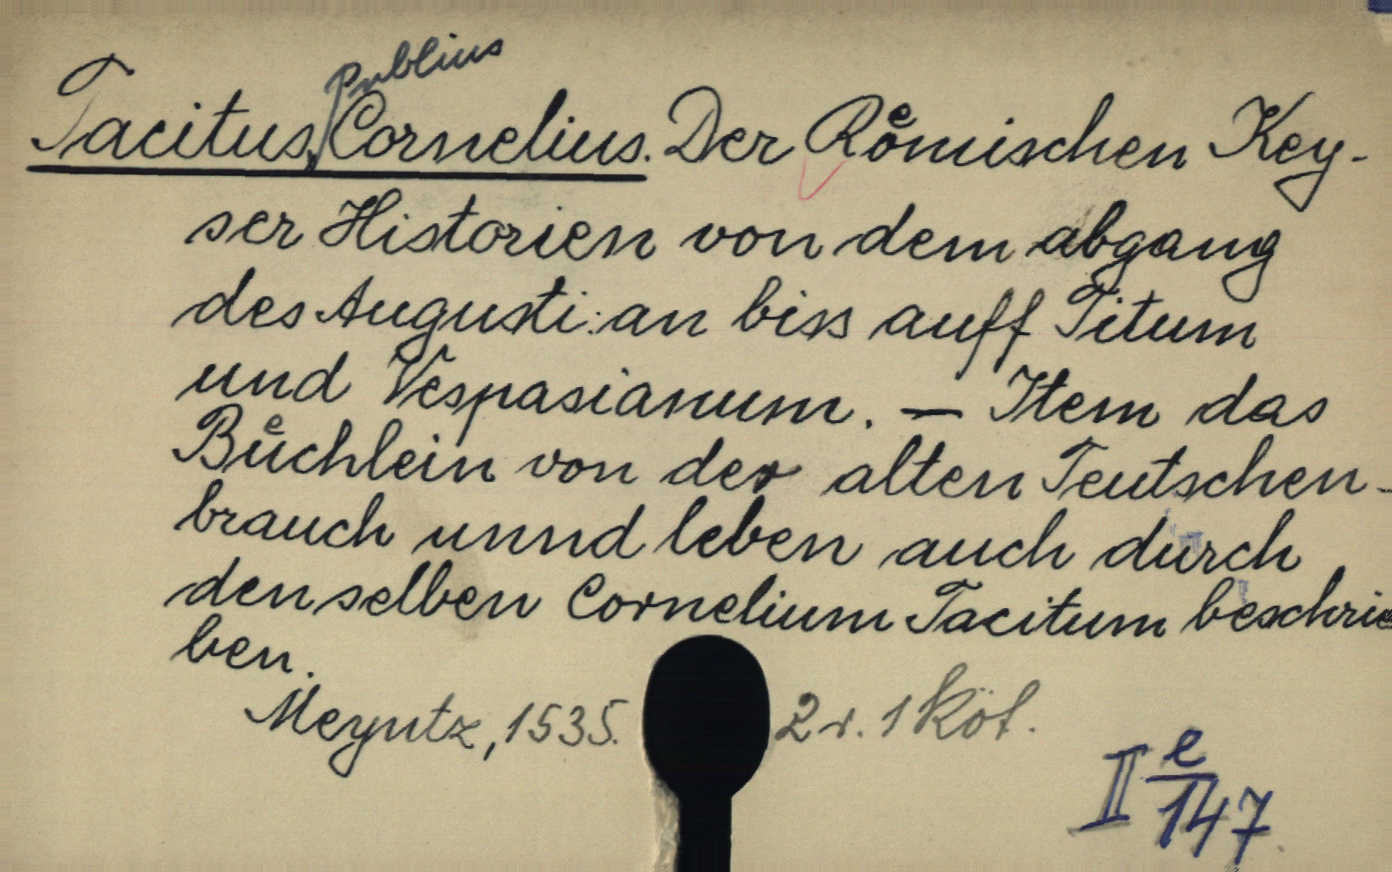 Publius
Tacitus, Cornelius. Der Roͤmischen Key-
ser Historien von dem abgang
des Augusti: an biss auff Titum
und Vespasianum. — Item das
Buͤchlein von der alten Teutschen-
brauch unnd leben auch durch
denselben Cornelium Tacitum beschrie
ben.
Meyntz, 1535. 2 r. 1 köt.
II e/147